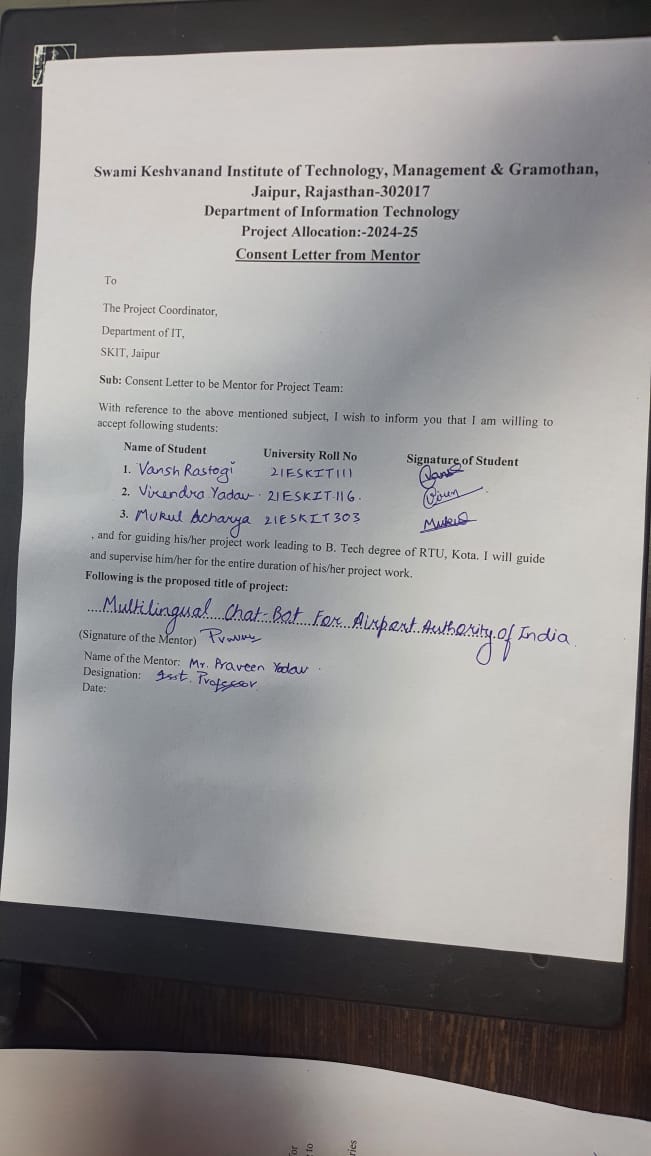 Swami Keshvanand Institute of Technology, Management & Gramothan,
Jaipur, Rajasthan-302017
Department of Information Technology
Project Allocation:-2024-25
Consent Letter from Mentor
To
The Project Coordinator,
Department of IT,
SKIT, Jaipur
Sub: Consent Letter to be Mentor for Project Team:
With reference to the above mentioned subject, I wish to inform you that I am willing to
accept following students:
Name of Student University Roll No Signature of Student
1. Vansh Rastogi 21ESKIT111 Vansh
2. Virendra Yadav 21ESKIT116.
3. Mukul Acharya 21ESKIT303 Mukul
, and for guiding his/her project work leading to B. Tech degree of RTU, Kota. I will guide
and supervise him/her for the entire duration of his/her project work.
Following is the proposed title of project:
....Multilingual Chat-Bot For Airport Authority of India.
(Signature of the Mentor)
Name of the Mentor: Mr. Praveen Yadav
Designation: Asst. Professor
Date:
or
to
ries